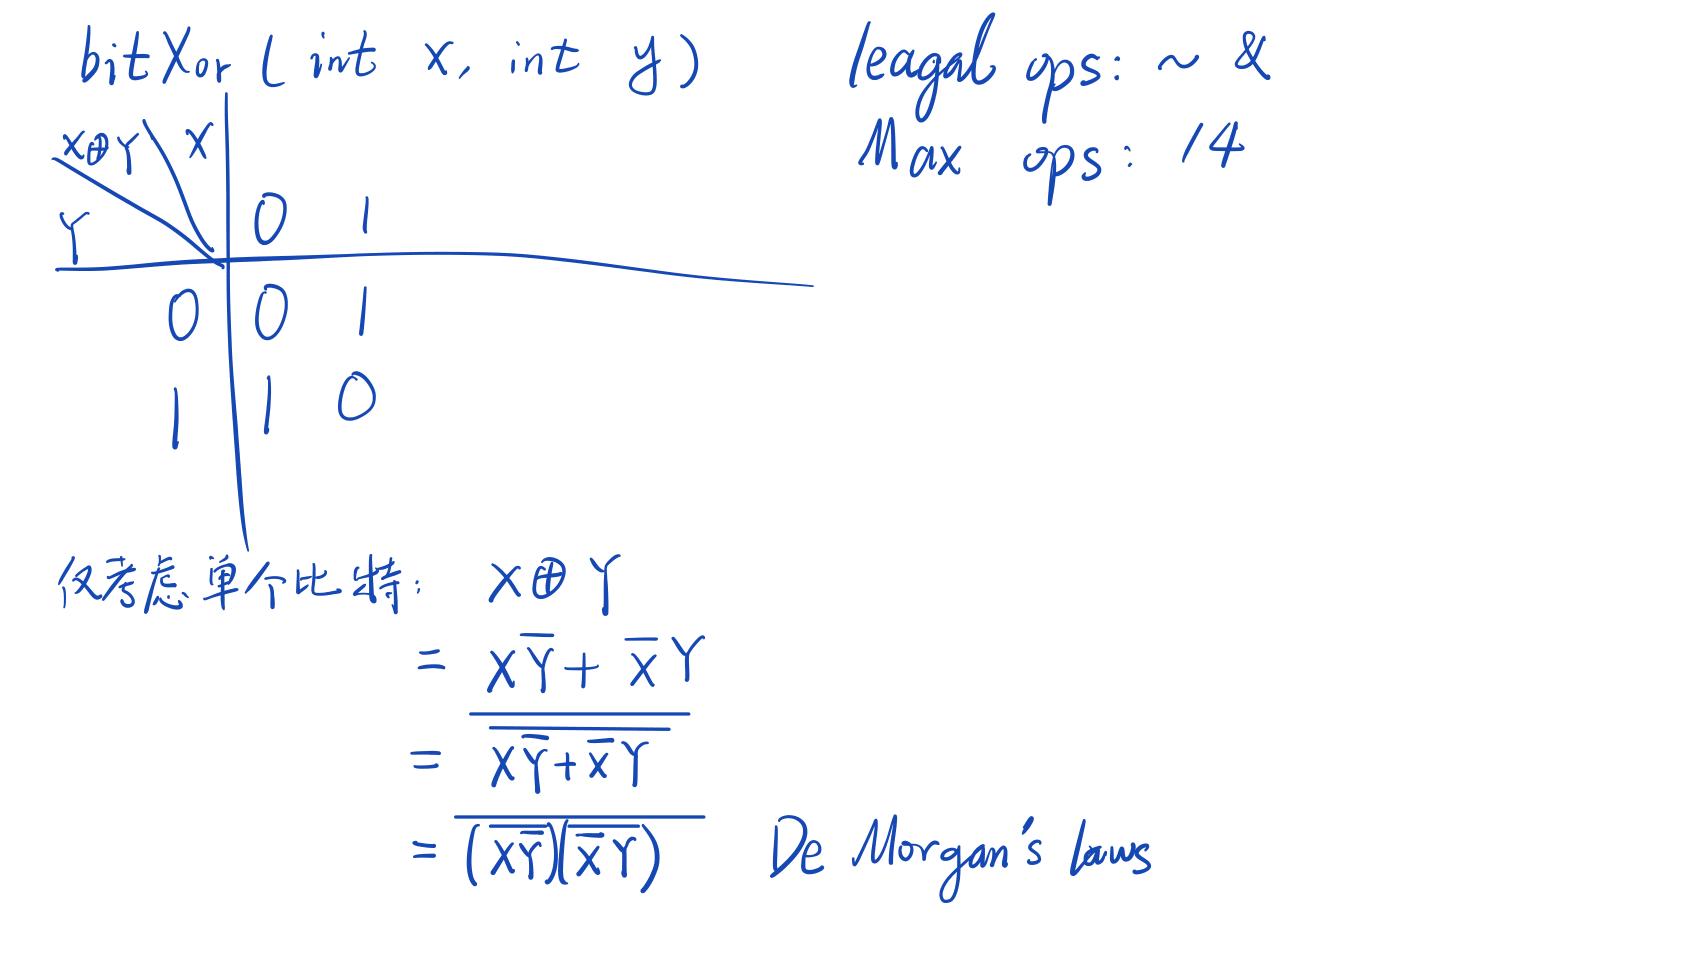 bitXor ( int x, int y)
leagal ops: ~ &
Max ops: 14
X⊕Y X
Y
0 1
0 0 1
1 1 0
仅考虑单个比特: X⊕Y
= XY̅ + X̅Y
= \overline{\overline{XY̅+X̅Y}}
= \overline{(\overline{XY̅})(\overline{X̅Y})} De Morgan's laws